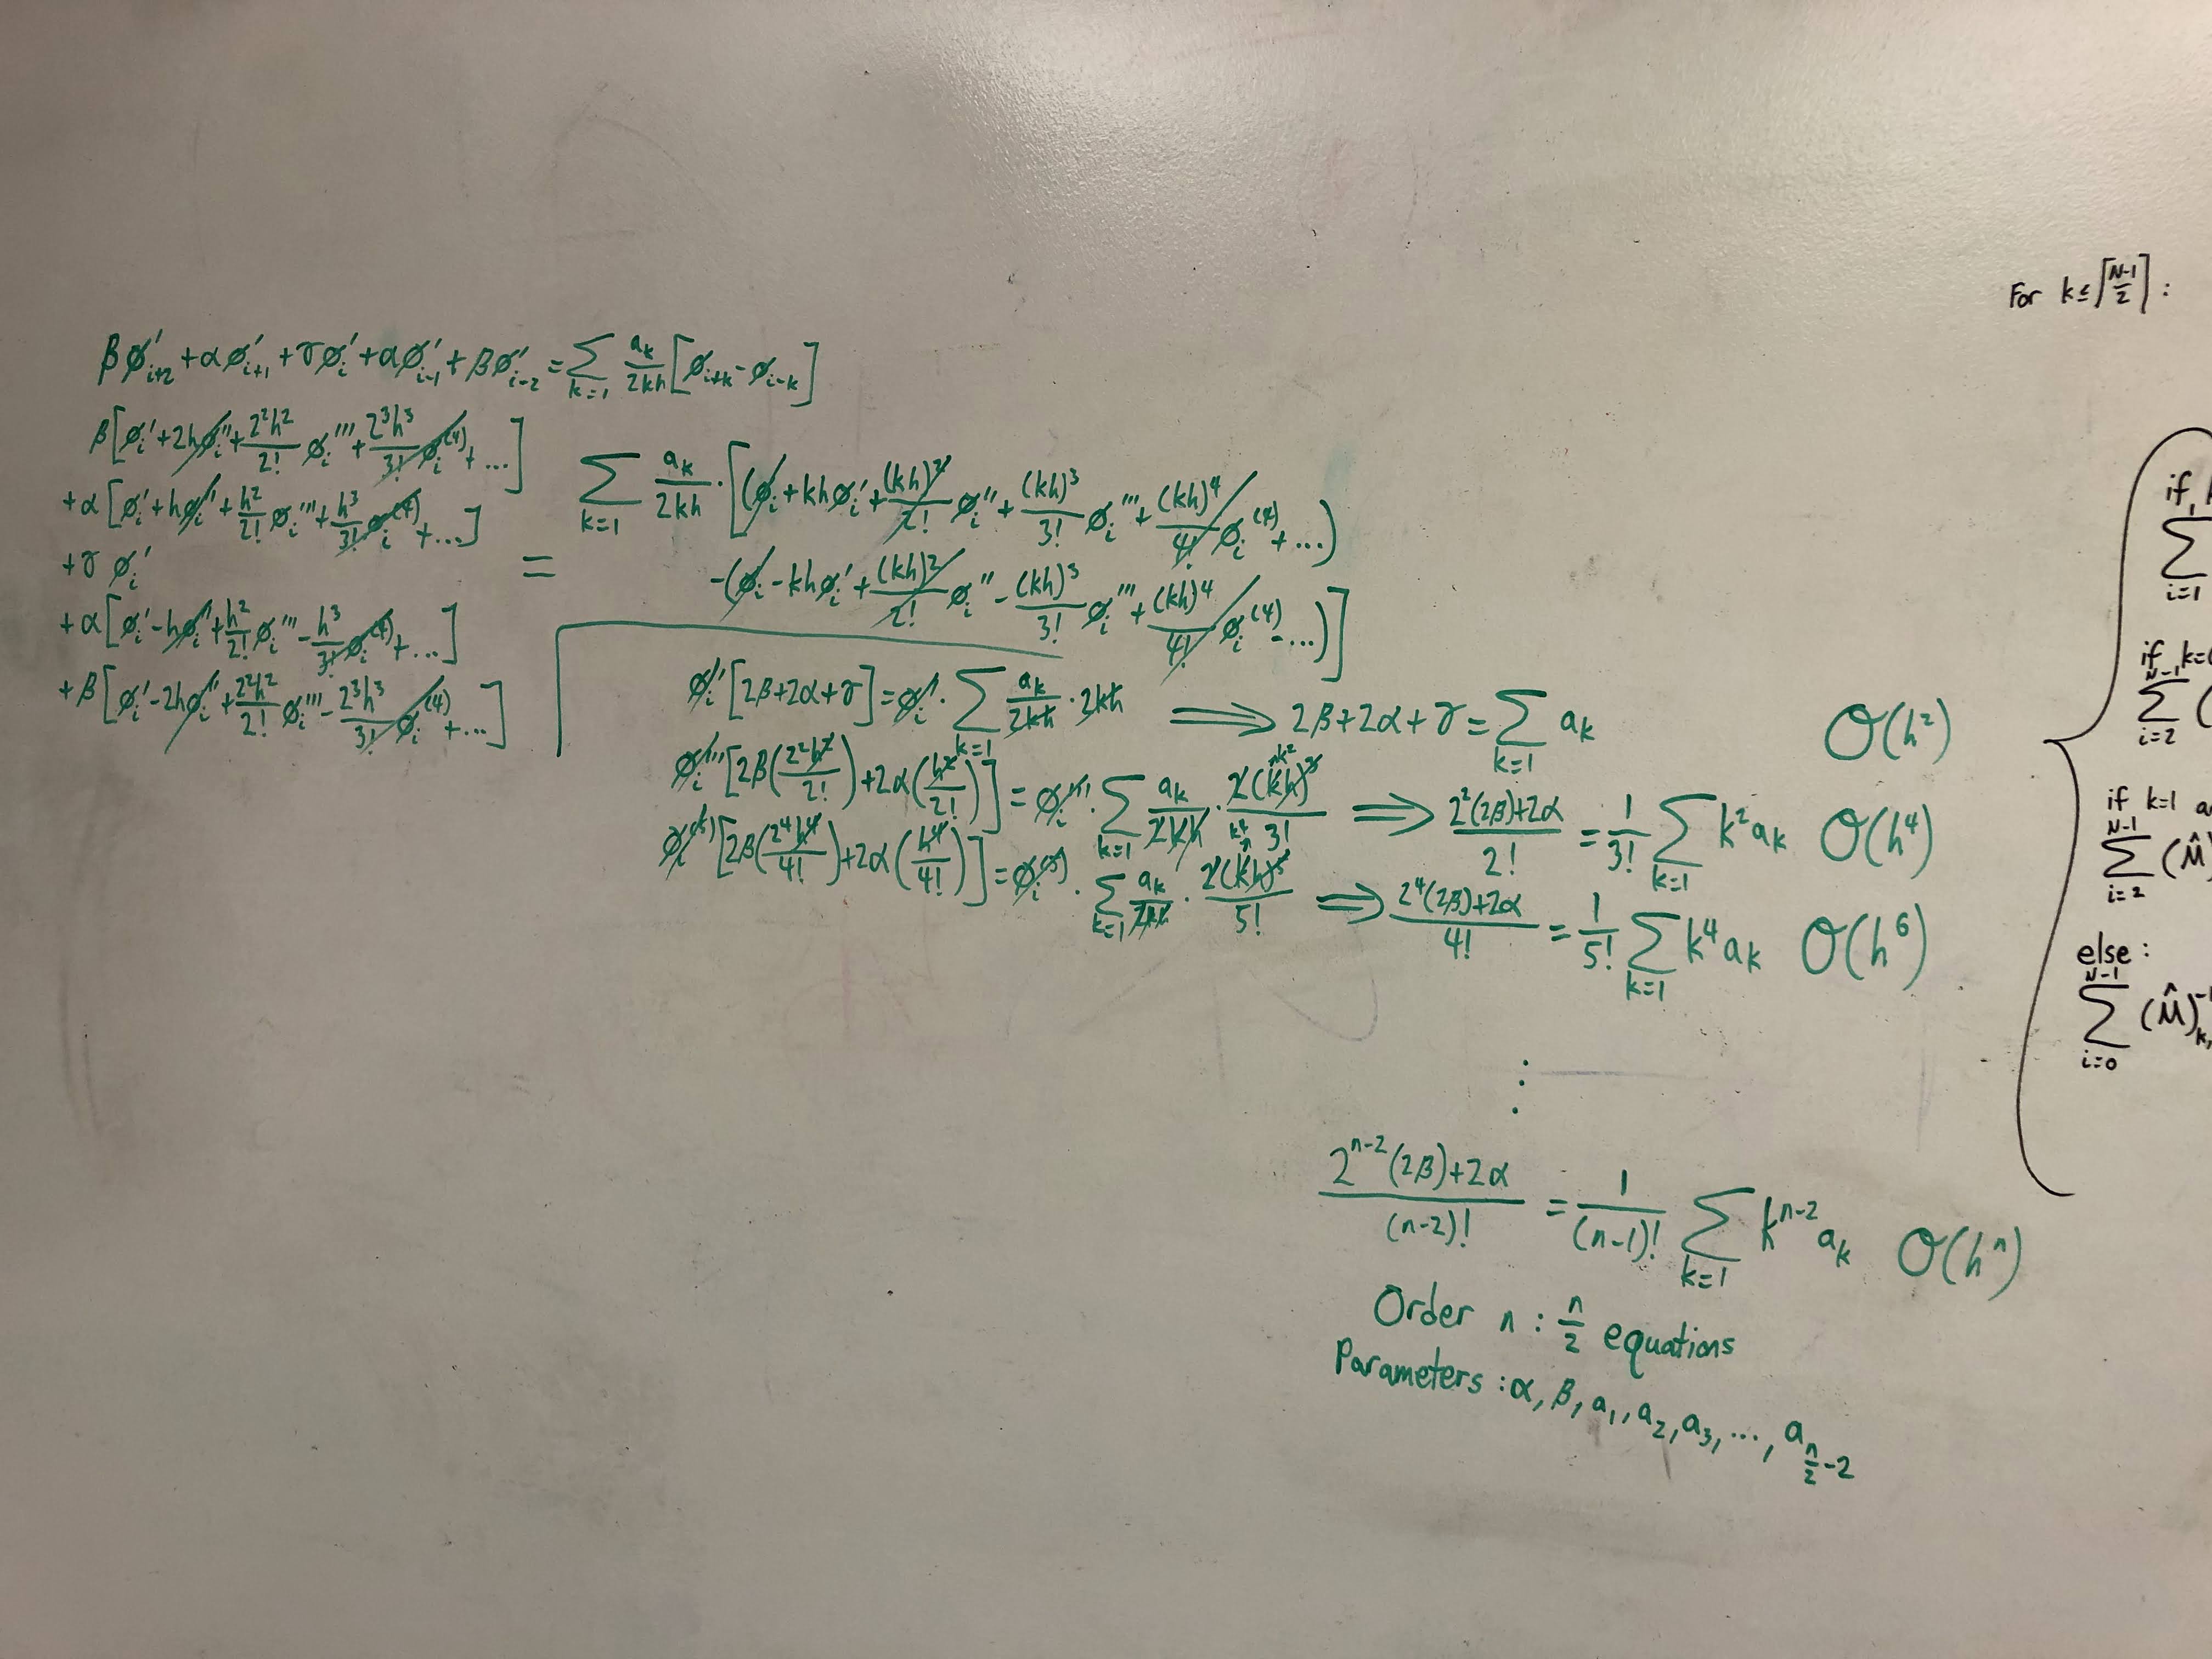 βφ'ᵢ₊₂ + αφ'ᵢ₊₁ + γφ'ᵢ + αφ'ᵢ₋₁ + βφ'ᵢ₋₂ = ∑_{k=1} a_k/(2kh) [φᵢ₊ₖ - φᵢ₋ₖ]
β[φᵢ' + 2hφᵢ'' + 2²h²/2! φᵢ''' + 2³h³/3! φᵢ⁽⁴⁾ + ...]
+ α[φᵢ' + hφᵢ'' + h²/2! φᵢ''' + h³/3! φᵢ⁽⁴⁾ + ...]
+ γ φᵢ'
+ α[φᵢ' - hφᵢ'' + h²/2! φᵢ''' - h³/3! φᵢ⁽⁴⁾ + ...]
+ β[φᵢ' - 2hφᵢ'' + 2²h²/2! φᵢ''' - 2³h³/3! φᵢ⁽⁴⁾ + ...]
= ∑_{k=1} a_k/(2kh) · [(φᵢ + khφᵢ' + (kh)²/2! φᵢ'' + (kh)³/3! φᵢ''' + (kh)⁴/4! φᵢ⁽⁴⁾ + ...)
-(φᵢ - khφᵢ' + (kh)²/2! φᵢ'' - (kh)³/3! φᵢ''' + (kh)⁴/4! φᵢ⁽⁴⁾ - ...)]
φᵢ'[2β+2α+γ] = φᵢ' · ∑_{k=1} a_k/(2kh) · 2kh ⟹ 2β+2α+γ = ∑_{k=1} a_k O(h²)
φᵢ'''[2β(2²h²/2!) + 2α(h²/2!)] = φᵢ''' · ∑_{k=1} a_k/(2kh) · 2(kh)³/3! ⟹ (2²(2β)+2α)/2! = 1/3! ∑_{k=1} k² a_k O(h⁴)
φᵢ⁽⁵⁾[2β(2⁴h⁴/4!) + 2α(h⁴/4!)] = φᵢ⁽⁵⁾ · ∑_{k=1} a_k/(2kh) · 2(kh)⁵/5! ⟹ (2⁴(2β)+2α)/4! = 1/5! ∑_{k=1} k⁴ a_k O(h⁶)
⋮
(2ⁿ⁻²(2β)+2α)/(n-2)! = 1/(n-1)! ∑_{k=1} kⁿ⁻² a_k O(hⁿ)
Order n : n/2 equations
Parameters : α, β, a₁, a₂, a₃, ..., a_{n/2-2}
For k ≤ ⌈(N-1)/2⌉ :
if
∑_{i=1}
if k=
∑_{i=2}^{N-1} (
if k=1
∑_{i=2}^{N-1} (M̂)
else :
∑_{i=0}^{N-1} (M̂)⁻¹_{k,